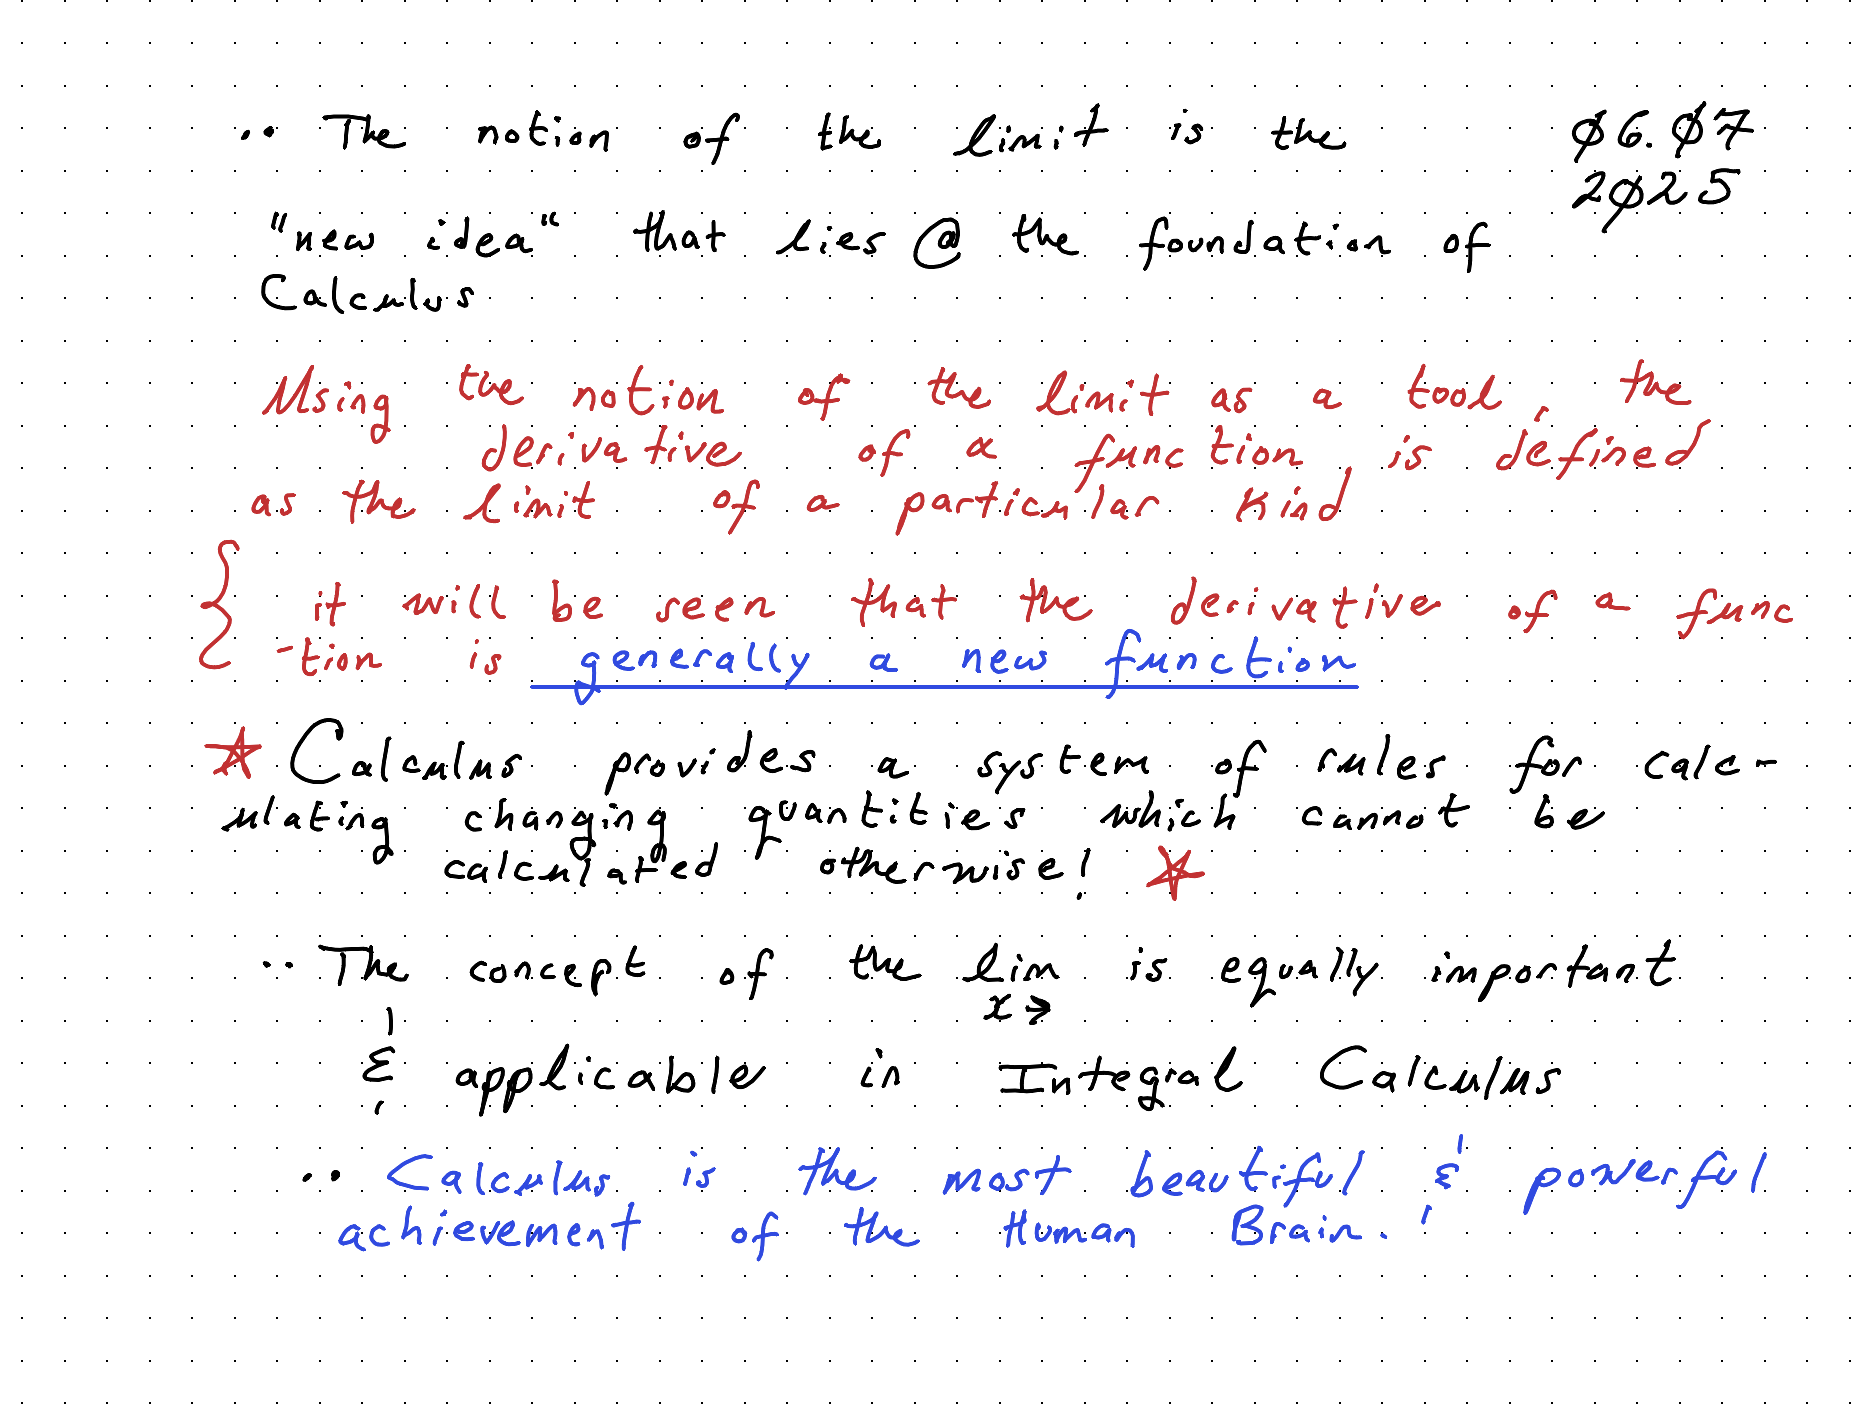 ·· The notion of the limit is the
Ø6.Ø7
2Ø25
"new idea" that lies @ the foundation of
Calculus
Using the notion of the limit as a tool, the
derivative of a function is defined
as the limit of a particular kind
{ it will be seen that the derivative of a func
-tion is generally a new function
☆ Calculus provides a system of rules for calc-
ulating changing quantities which cannot be
calculated otherwise! ☆
·· The concept of the lim is equally important
x→
& applicable in Integral Calculus
·· Calculus is the most beautiful & powerful
achievement of the Human Brain.